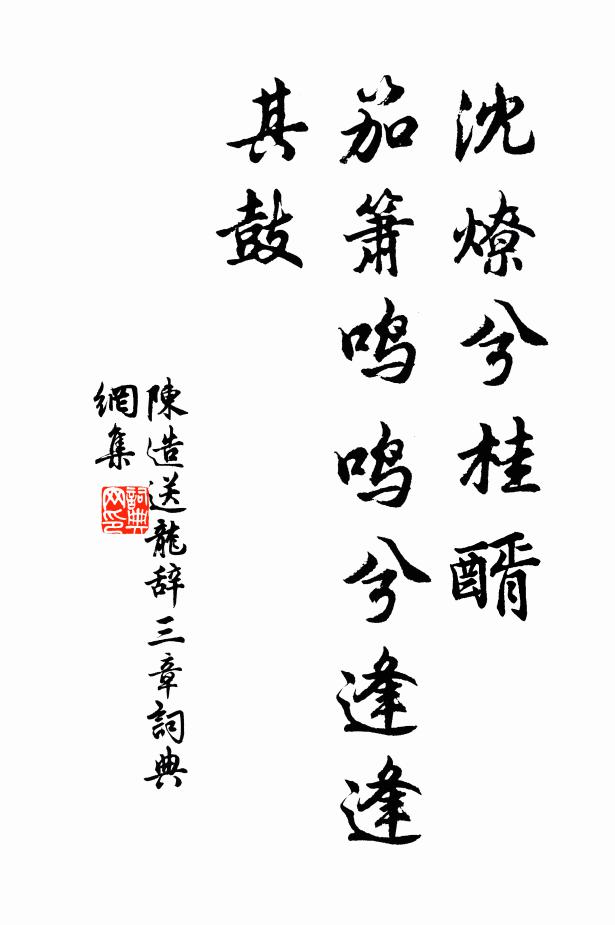 沈燎兮桂醑
笳箫鳴鳴兮逢逢
其鼓
陳造送龍辞三章詞典
網集
詞典
网